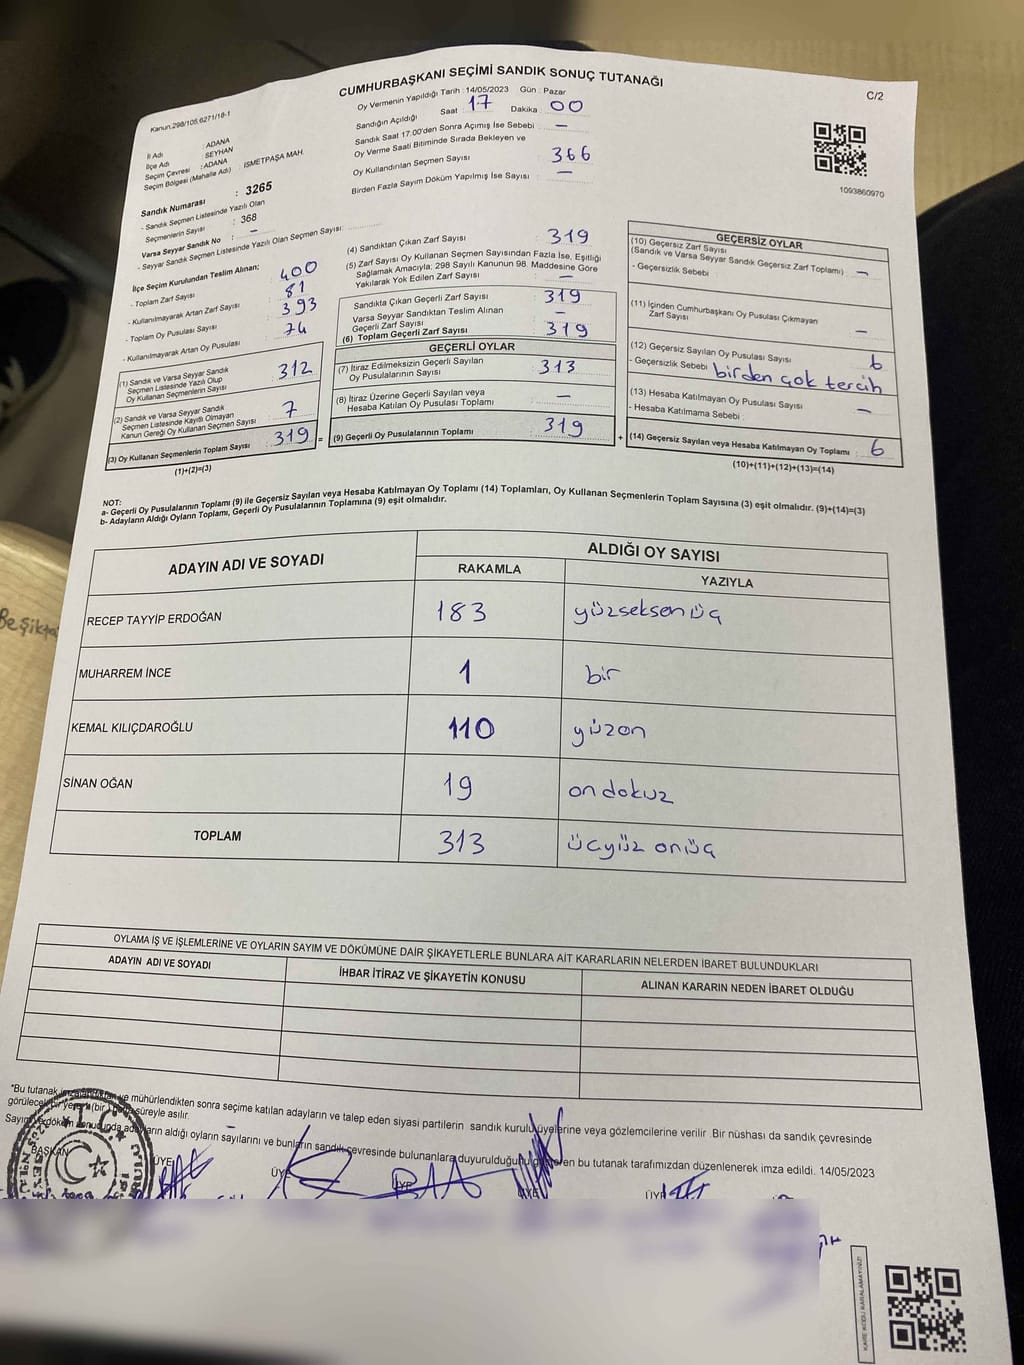 CUMHURBAŞKANI SEÇİMİ SANDIK SONUÇ TUTANAĞI
C/2
Kanun.298/105,6271/18-1
Oy Vermenin Yapıldığı Tarih : 14/05/2023 Gün : Pazar
Sandığın Açıldığı Saat 17 Dakika : 00
Sandık Saat 17.00'den Sonra Açımış İse Sebebi : —
Oy Verme Saati Bitiminde Sırada Bekleyen ve
Oy Kullandırılan Seçmen Sayısı 366
Birden Fazla Sayım Döküm Yapılmış İse Sayısı : —
1093860970
İl Adı : ADANA
İlçe Adı : SEYHAN
Seçim Çevresi : ADANA
Seçim Bölgesi (Mahalle Adı) : İSMETPAŞA MAH.
Sandık Numarası : 3265
- Sandık Seçmen Listesinde Yazılı Olan
Seçmenlerin Sayısı : 368
Varsa Seyyar Sandık No : —
- Seyyar Sandık Seçmen Listesinde Yazılı Olan Seçmen Sayısı:
İlçe Seçim Kurulundan Teslim Alınan;
- Toplam Zarf Sayısı : 400
- Kullanılmayarak Artan Zarf Sayısı : 81
- Toplam Oy Pusulası Sayısı : 393
- Kullanılmayarak Artan Oy Pusulası : 74
(1) Sandık ve Varsa Seyyar Sandık
Seçmen Listesinde Yazılı Olup
Oy Kullanan Seçmenlerin Sayısı : 312
(2) Sandık ve Varsa Seyyar Sandık
Seçmen Listesinde Kayıtlı Olmayan
Kanun Gereği Oy Kullanan Seçmen Sayısı : 7
(3) Oy Kullanan Seçmenlerin Toplam Sayısı : 319
(1)+(2)=(3)
(4) Sandıktan Çıkan Zarf Sayısı : 319
(5) Zarf Sayısı Oy Kullanan Seçmen Sayısından Fazla İse, Eşitliği
Sağlamak Amacıyla; 298 Sayılı Kanunun 98. Maddesine Göre
Yakılarak Yok Edilen Zarf Sayısı : —
Sandıkta Çıkan Geçerli Zarf Sayısı : 319
Varsa Seyyar Sandıktan Teslim Alınan
Geçerli Zarf Sayısı : —
(6) Toplam Geçerli Zarf Sayısı : 319
GEÇERLİ OYLAR
(7) İtiraz Edilmeksizin Geçerli Sayılan
Oy Pusulalarının Sayısı : 313
(8) İtiraz Üzerine Geçerli Sayılan veya
Hesaba Katılan Oy Pusulası Toplamı : —
= (9) Geçerli Oy Pusulalarının Toplamı : 319
GEÇERSİZ OYLAR
(10) Geçersiz Zarf Sayısı
(Sandık ve Varsa Seyyar Sandık Geçersiz Zarf Toplamı) : —
- Geçersizlik Sebebi :
(11) İçinden Cumhurbaşkanı Oy Pusulası Çıkmayan
Zarf Sayısı : —
(12) Geçersiz Sayılan Oy Pusulası Sayısı : 6
- Geçersizlik Sebebi : birden çok tercih
(13) Hesaba Katılmayan Oy Pusulası Sayısı : —
- Hesaba Katılmama Sebebi :
+ (14) Geçersiz Sayılan veya Hesaba Katılmayan Oy Toplamı : 6
(10)+(11)+(12)+(13)=(14)
NOT:
a- Geçerli Oy Pusulalarının Toplamı (9) ile Geçersiz Sayılan veya Hesaba Katılmayan Oy Toplamı (14) Toplamları, Oy Kullanan Seçmenlerin Toplam Sayısına (3) eşit olmalıdır. (9)+(14)=(3)
b- Adayların Aldığı Oyların Toplamı, Geçerli Oy Pusulalarının Toplamına (9) eşit olmalıdır.
ADAYIN ADI VE SOYADI ALDIĞI OY SAYISI
RAKAMLA YAZIYLA
RECEP TAYYİP ERDOĞAN 183 yüzseksenüç
MUHARREM İNCE 1 bir
KEMAL KILIÇDAROĞLU 110 yüzon
SİNAN OĞAN 19 on dokuz
TOPLAM 313 üçyüz onüç
Beşikta
OYLAMA İŞ VE İŞLEMLERİNE VE OYLARIN SAYIM VE DÖKÜMÜNE DAİR ŞİKAYETLERLE BUNLARA AİT KARARLARIN NELERDEN İBARET BULUNDUKLARI
ADAYIN ADI VE SOYADI İHBAR İTİRAZ VE ŞİKAYETİN KONUSU ALINAN KARARIN NEDEN İBARET OLDUĞU
*Bu tutanak ve mühürlendikten sonra seçime katılan adayların ve talep eden siyasi partilerin sandık kurulu üyelerine veya gözlemcilerine verilir. Bir nüshası da sandık çevresinde
görülecek bir yere (bir) süreyle asılır.
Sayım ve döküm sonucunda adayların aldığı oyların sayılarını ve bunların sandık çevresinde bulunanlara duyurulduğunu gösteren bu tutanak tarafımızdan düzenlenerek imza edildi. 14/05/2023
BAŞKAN ÜYE ÜYE ÜYE ÜYE ÜYE
KARE KODU KARALAMAYINIZ!